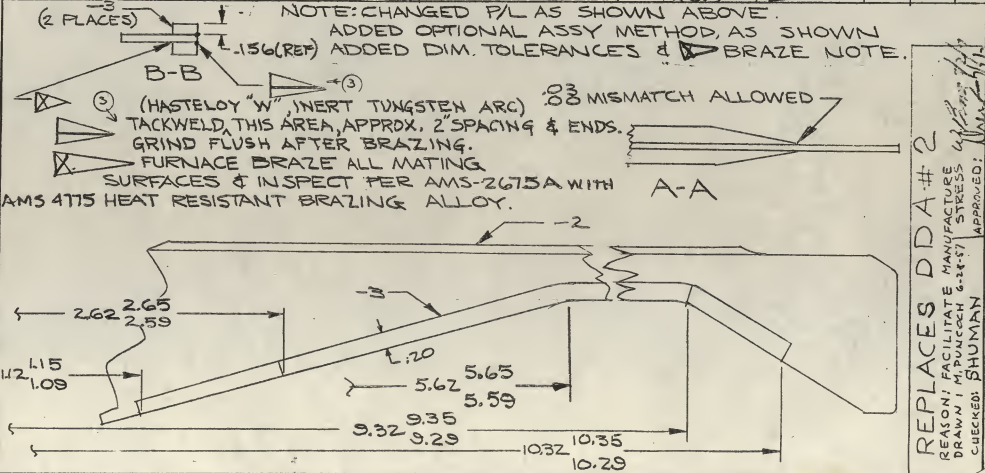 -3
(2 PLACES)
.156(REF)
B-B
NOTE: CHANGED P/L AS SHOWN ABOVE.
ADDED OPTIONAL ASSY METHOD, AS SHOWN
ADDED DIM. TOLERANCES & X BRAZE NOTE.
3
X
3
(HASTELOY "W", INERT TUNGSTEN ARC)
TACKWELD THIS AREA, APPROX. 2" SPACING & ENDS.
GRIND FLUSH AFTER BRAZING.
X FURNACE BRAZE ALL MATING
SURFACES & INSPECT PER AMS-2675A WITH
AMS 4775 HEAT RESISTANT BRAZING ALLOY.
.03
.00 MISMATCH ALLOWED
A-A
-2
-3
2.62 2.65
2.59
.20
1.12 1.15
1.09
5.62 5.65
5.59
9.32 9.35
9.29
10.32 10.35
10.29
REPLACES DDA #2
REASON: FACILITATE MANUFACTURE
DRAWN: M. PUNCOCH 6-28-57 STRESS
CHECKED: SHUMAN APPROVED: